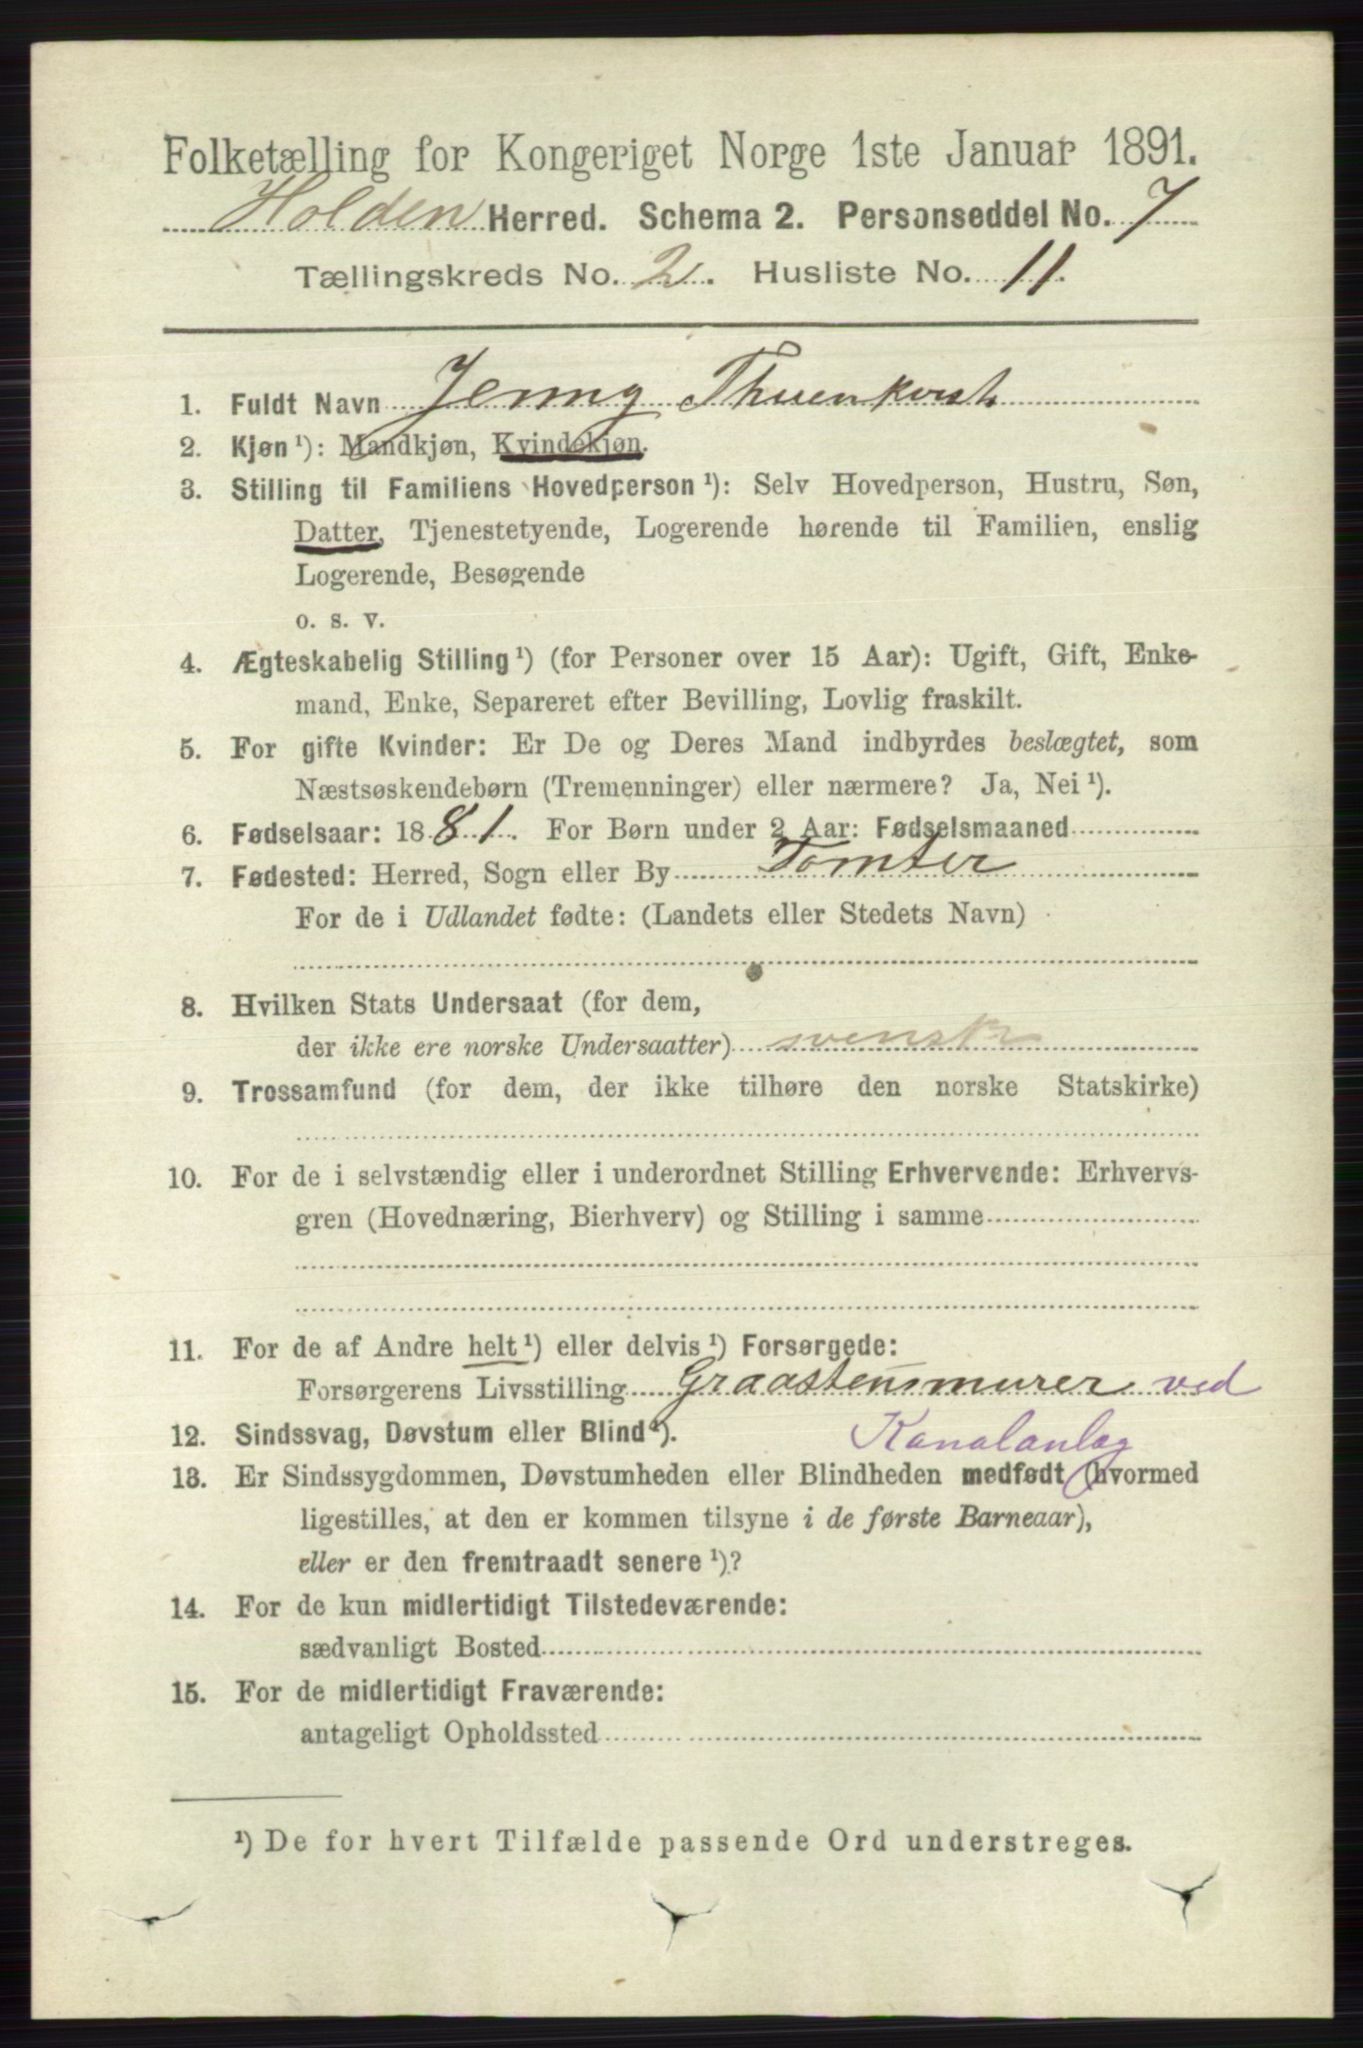 Folketælling for Kongeriget Norge 1ste Januar 1891.
Holden Herred. Schema 2. Personseddel No. 7
Tællingskreds No. 2. Husliste No. 11.
1. Fuldt Navn Jenny
2. Kjøn ¹): Mandkjøn, Kvindekjøn.
3. Stilling til Familiens Hovedperson ¹): Selv Hovedperson, Hustru, Søn,
Datter, Tjenestetyende, Logerende hørende til Familien, enslig
Logerende, Besøgende
o. s. v.
4. Ægteskabelig Stilling ¹) (for Personer over 15 Aar): Ugift, Gift, Enke-
mand, Enke, Separeret efter Bevilling, Lovlig fraskilt.
5. For gifte Kvinder: Er De og Deres Mand indbyrdes beslægtet, som
Næstsøskendebørn (Tremenninger) eller nærmere? Ja, Nei ¹).
6. Fødselsaar: 1881. For Børn under 2 Aar: Fødselsmaaned
7. Fødested: Herred, Sogn eller By Tomter
For de i Udlandet fødte: (Landets eller Stedets Navn)
8. Hvilken Stats Undersaat (for dem,
der ikke ere norske Undersaatter) svensk
9. Trossamfund (for dem, der ikke tilhøre den norske Statskirke)
10. For de i selvstændig eller i underordnet Stilling Erhvervende: Erhvervs-
gren (Hovednæring, Bierhverv) og Stilling i samme
11. For de af Andre helt ¹) eller delvis ¹) Forsørgede:
Forsørgerens Livsstilling Graastensmurer ved
Kanalanlæg
12. Sindssvag, Døvstum eller Blind ¹).
13. Er Sindssygdommen, Døvstumheden eller Blindheden medfødt (hvormed
ligestilles, at den er kommen tilsyne i de første Barneaar),
eller er den fremtraadt senere ¹)?
14. For de kun midlertidigt Tilstedeværende:
sædvanligt Bosted
15. For de midlertidigt Fraværende:
antageligt Opholdssted
¹) De for hvert Tilfælde passende Ord understreges.